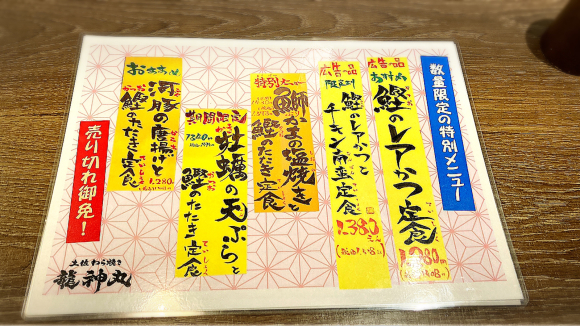 数量限定の特別メニュー
広告の品
おすすめ
鰹のレアかつ定食
広告の品
鰹のレアかつと
チキン南蛮定食
1,380えん
特別メニュー
鰤カマの塩焼きと
鰹のたたき定食
期間限定
牡蠣の天ぷらと
鰹のたたき定食
ていしょく
おすすめ
河豚の唐揚げと
鰹のたたき定食
1,280
売り切れ御免!
土佐わら焼き
龍神丸